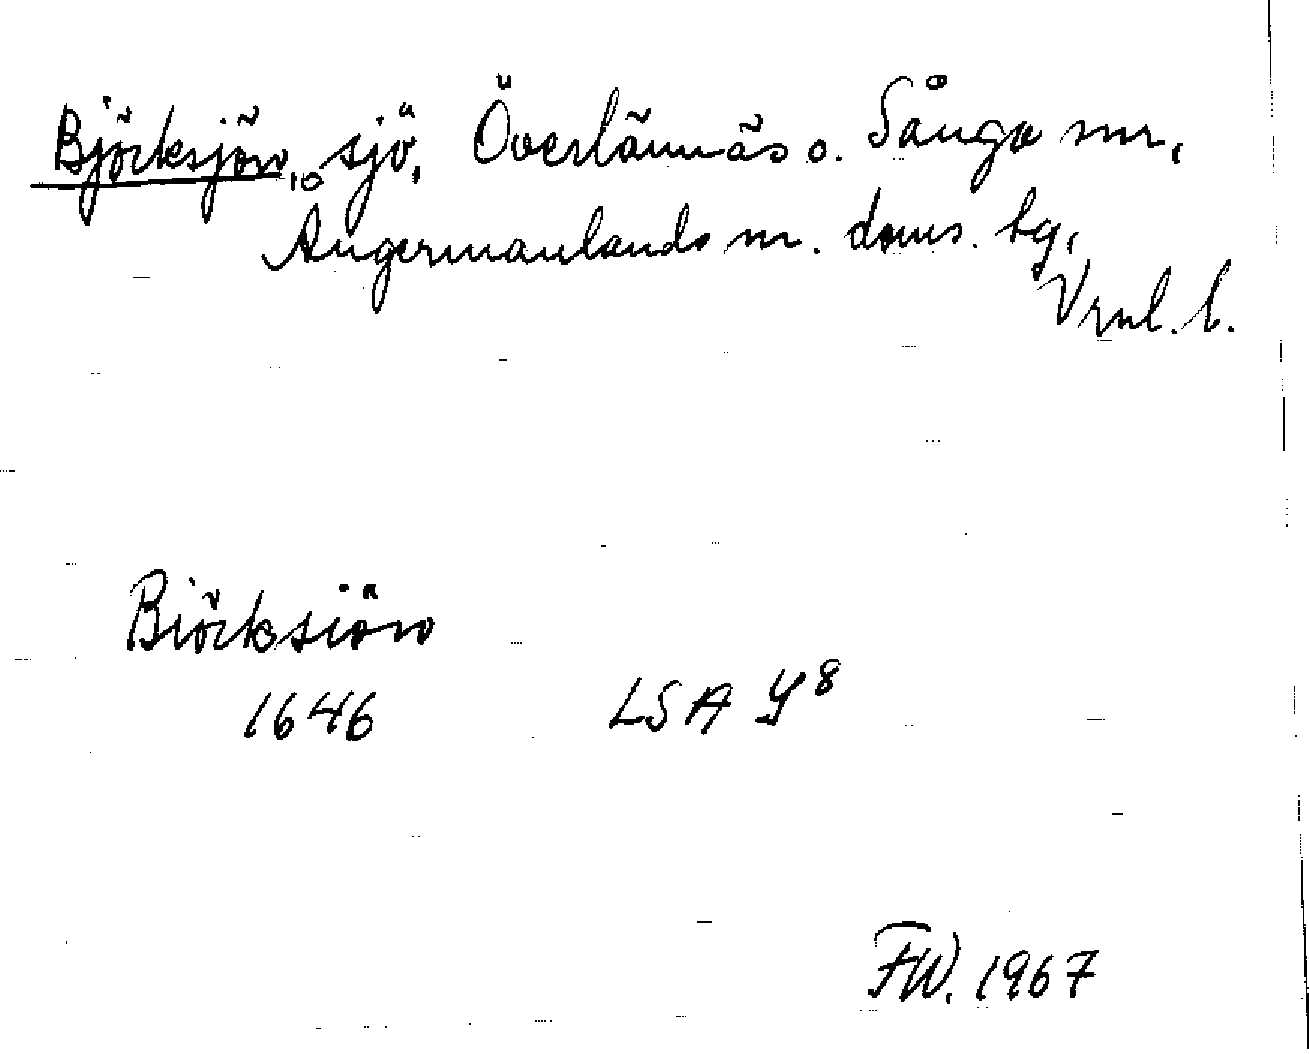 Björksjön, sjö, Överlännäs o. Sånga snr,
Ångermanlands m. doms. tg,
Vrnl. l.
Biörksiön
1646 LSA Y8
FW. 1967